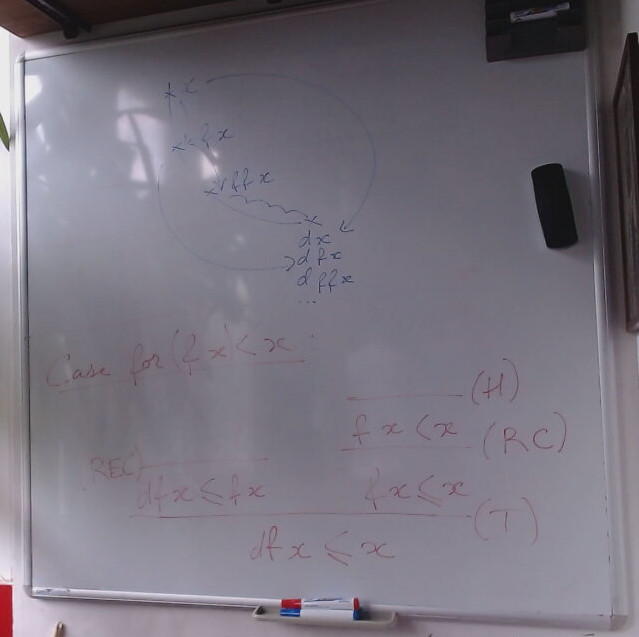 x
fx
ffx
dx
dfx
dffx
...
Case for (fx) < x :
(H)
fx < x (RC)
REC)
dfx ≤ fx fx ≤ x
(T)
dfx ≤ x